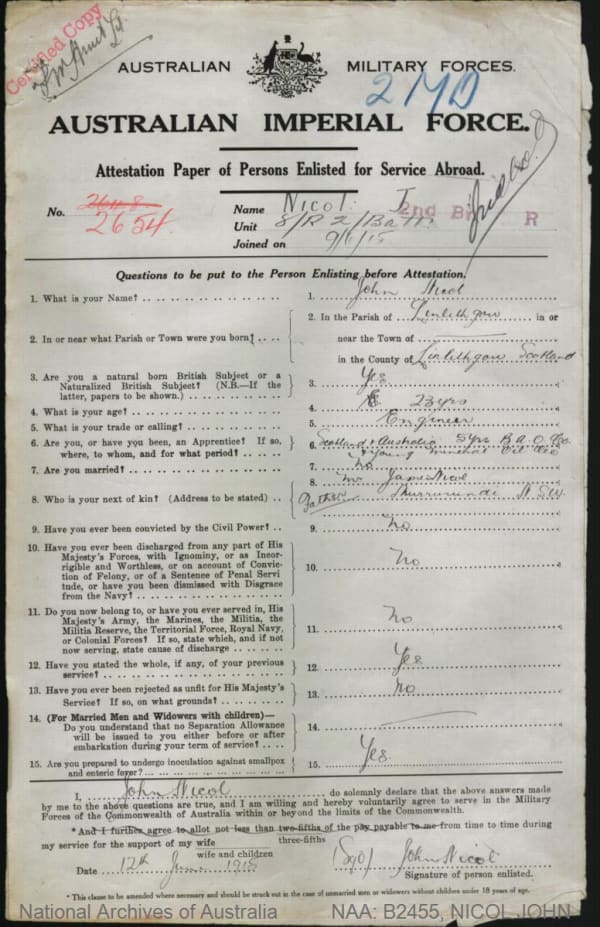 Certified Copy
AUSTRALIAN MILITARY FORCES.
2 MD
AUSTRALIAN IMPERIAL FORCE.
Attestation Paper of Persons Enlisted for Service Abroad.
No. 2654.
Name Nicol J
Unit 8/R 2/Batt. 2nd Bn R
Joined on 9/6/15
Questions to be put to the Person Enlisting before Attestation.
1. What is your Name? 1. John Nicol
2. In or near what Parish or Town were you born? 2. In the Parish of Linlithgow in or
near the Town of
in the County of Linlithgow Scotland
3. Are you a natural born British Subject or a
Naturalized British Subject? (N.B.—If the
latter, papers to be shown.) 3. Yes
4. What is your age? 4. 23 yrs
5. What is your trade or calling? 5. Engineer
6. Are you, or have you been, an Apprentice? If so,
where, to whom, and for what period? 6. Scotland & Australia 5 yrs B. A. O. Co.
& Young Oil Co
7. Are you married? 7. No
8. Who is your next of kin? (Address to be stated) 8. Mr James Nicol
Father Murrurundi N.S.W.
9. Have you ever been convicted by the Civil Power? 9. No
10. Have you ever been discharged from any part of His
Majesty's Forces, with Ignominy, or as Incor-
rigible and Worthless, or on account of Convic-
tion of Felony, or of a Sentence of Penal Servi
tude, or have you been dismissed with Disgrace
from the Navy? 10. No
11. Do you now belong to, or have you ever served in, His
Majesty's Army, the Marines, the Militia, the
Militia Reserve, the Territorial Force, Royal Navy,
or Colonial Forces? If so, state which, and if not
now serving, state cause of discharge 11. No
12. Have you stated the whole, if any, of your previous
service? 12. Yes
13. Have you ever been rejected as unfit for His Majesty's
Service? If so, on what grounds? 13. No
14. (For Married Men and Widowers with children)—
Do you understand that no Separation Allowance
will be issued to you either before or after
embarkation during your term of service? 14.
15. Are you prepared to undergo inoculation against smallpox
and enteric fever? 15. Yes.
I, John Nicol do solemnly declare that the above answers made
by me to the above questions are true, and I am willing and hereby voluntarily agree to serve in the Military
Forces of the Commonwealth of Australia within or beyond the limits of the Commonwealth.
*And I further agree to allot not less than two-fifths of the pay payable to me from time to time during
three-fifths
my service for the support of my wife
wife and children
Date 12th June 1915 (Sgd) John Nicol
Signature of person enlisted.
* This clause to be amended where necessary and should be struck out in the case of unmarried men or widowers without children under 18 years of age.
National Archives of Australia NAA: B2455, NICOL JOHN